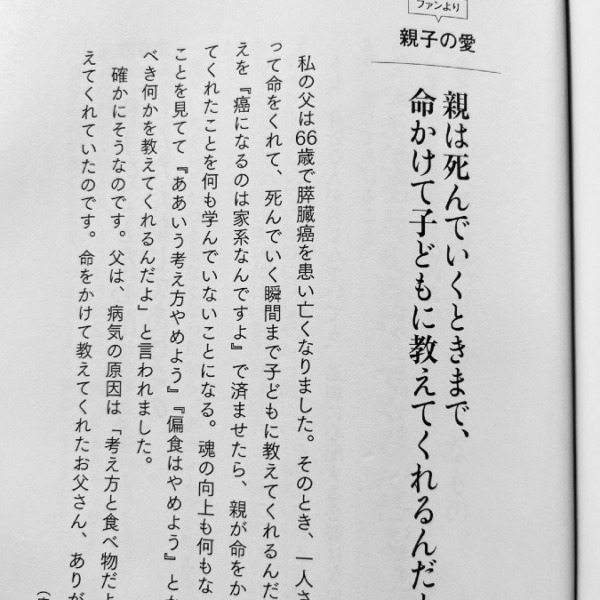 ファンより
親子の愛
親は死んでいくときまで、
命かけて子どもに教えてくれるんだ
私の父は66歳で膵臓癌を患い亡くなりました。そのとき、一人さ
って命をくれて、死んでいく瞬間まで子どもに教えてくれるんだ
えを『癌になるのは家系なんですよ』で済ませたら、親が命をか
てくれたことを何も学んでいないことになる。魂の向上も何もな
ことを見てて『ああいう考え方やめよう』『偏食はやめよう』とか
べき何かを教えてくれるんだよ」と言われました。
確かにそうなのです。父は、病気の原因は「考え方と食べ物だよ
えてくれていたのです。命をかけて教えてくれたお父さん、ありが